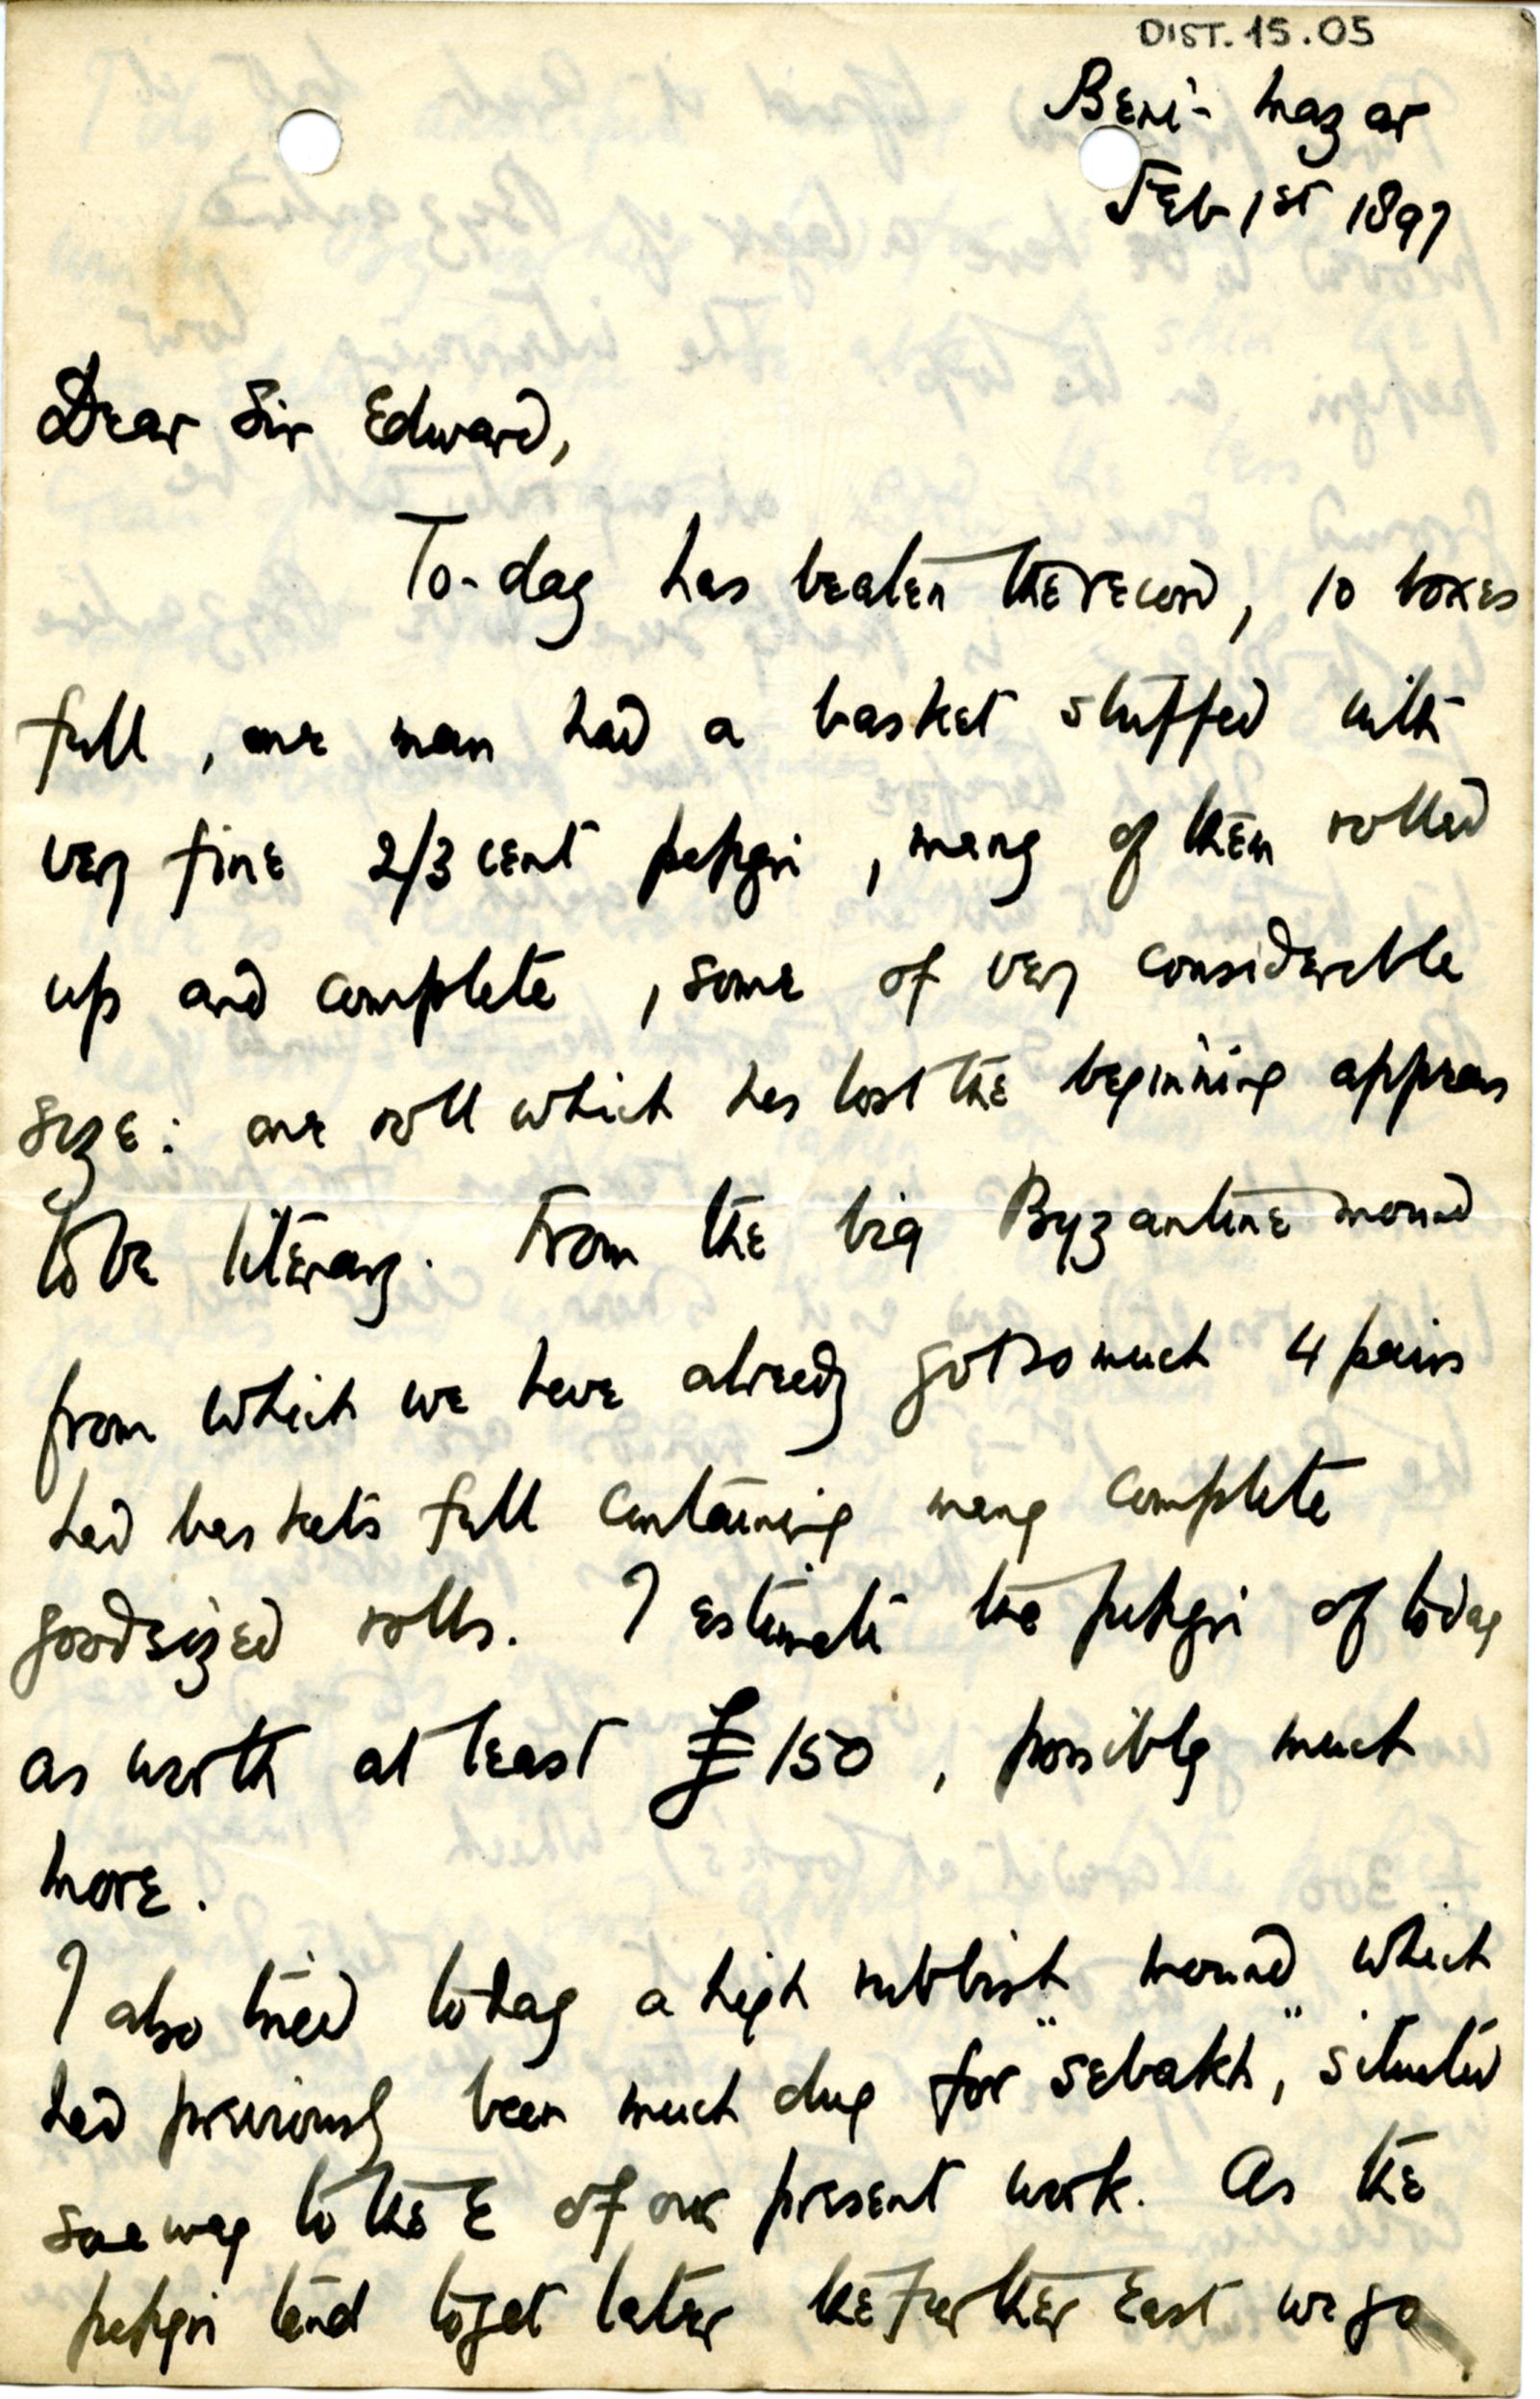 DIST. 15.05
Beni-Mazar
Feb 1st 1897
Dear Sir Edward,
To-day has beaten the record, 10 boxes
full, one man had a basket stuffed with
very fine 2/3 cent papyri, many of them rolled
up and complete, some of very considerable
size: one roll which has lost the beginning appears
to be literary. From the big Byzantine mound
from which we have already got so much 4 pairs
had baskets full containing many complete
goodsized rolls. I estimate the papyri of today
as worth at least £150, possibly much
more.
I also tried today a high rubbish mound which
had previously been much dug for "sebakh", situated
some way to the E of our present work. As the
papyri tend to get later the further East we go